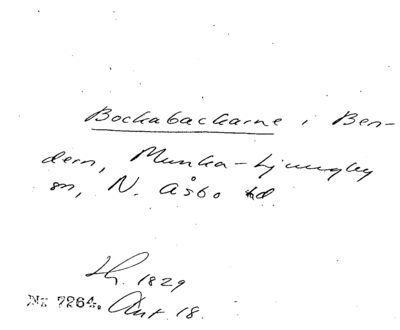 Bockabackarne i Ben-
dern, Munka-Ljungby
sn, N. Åsbo hd
Lh. 1829
Nr 7264. Akt 18.